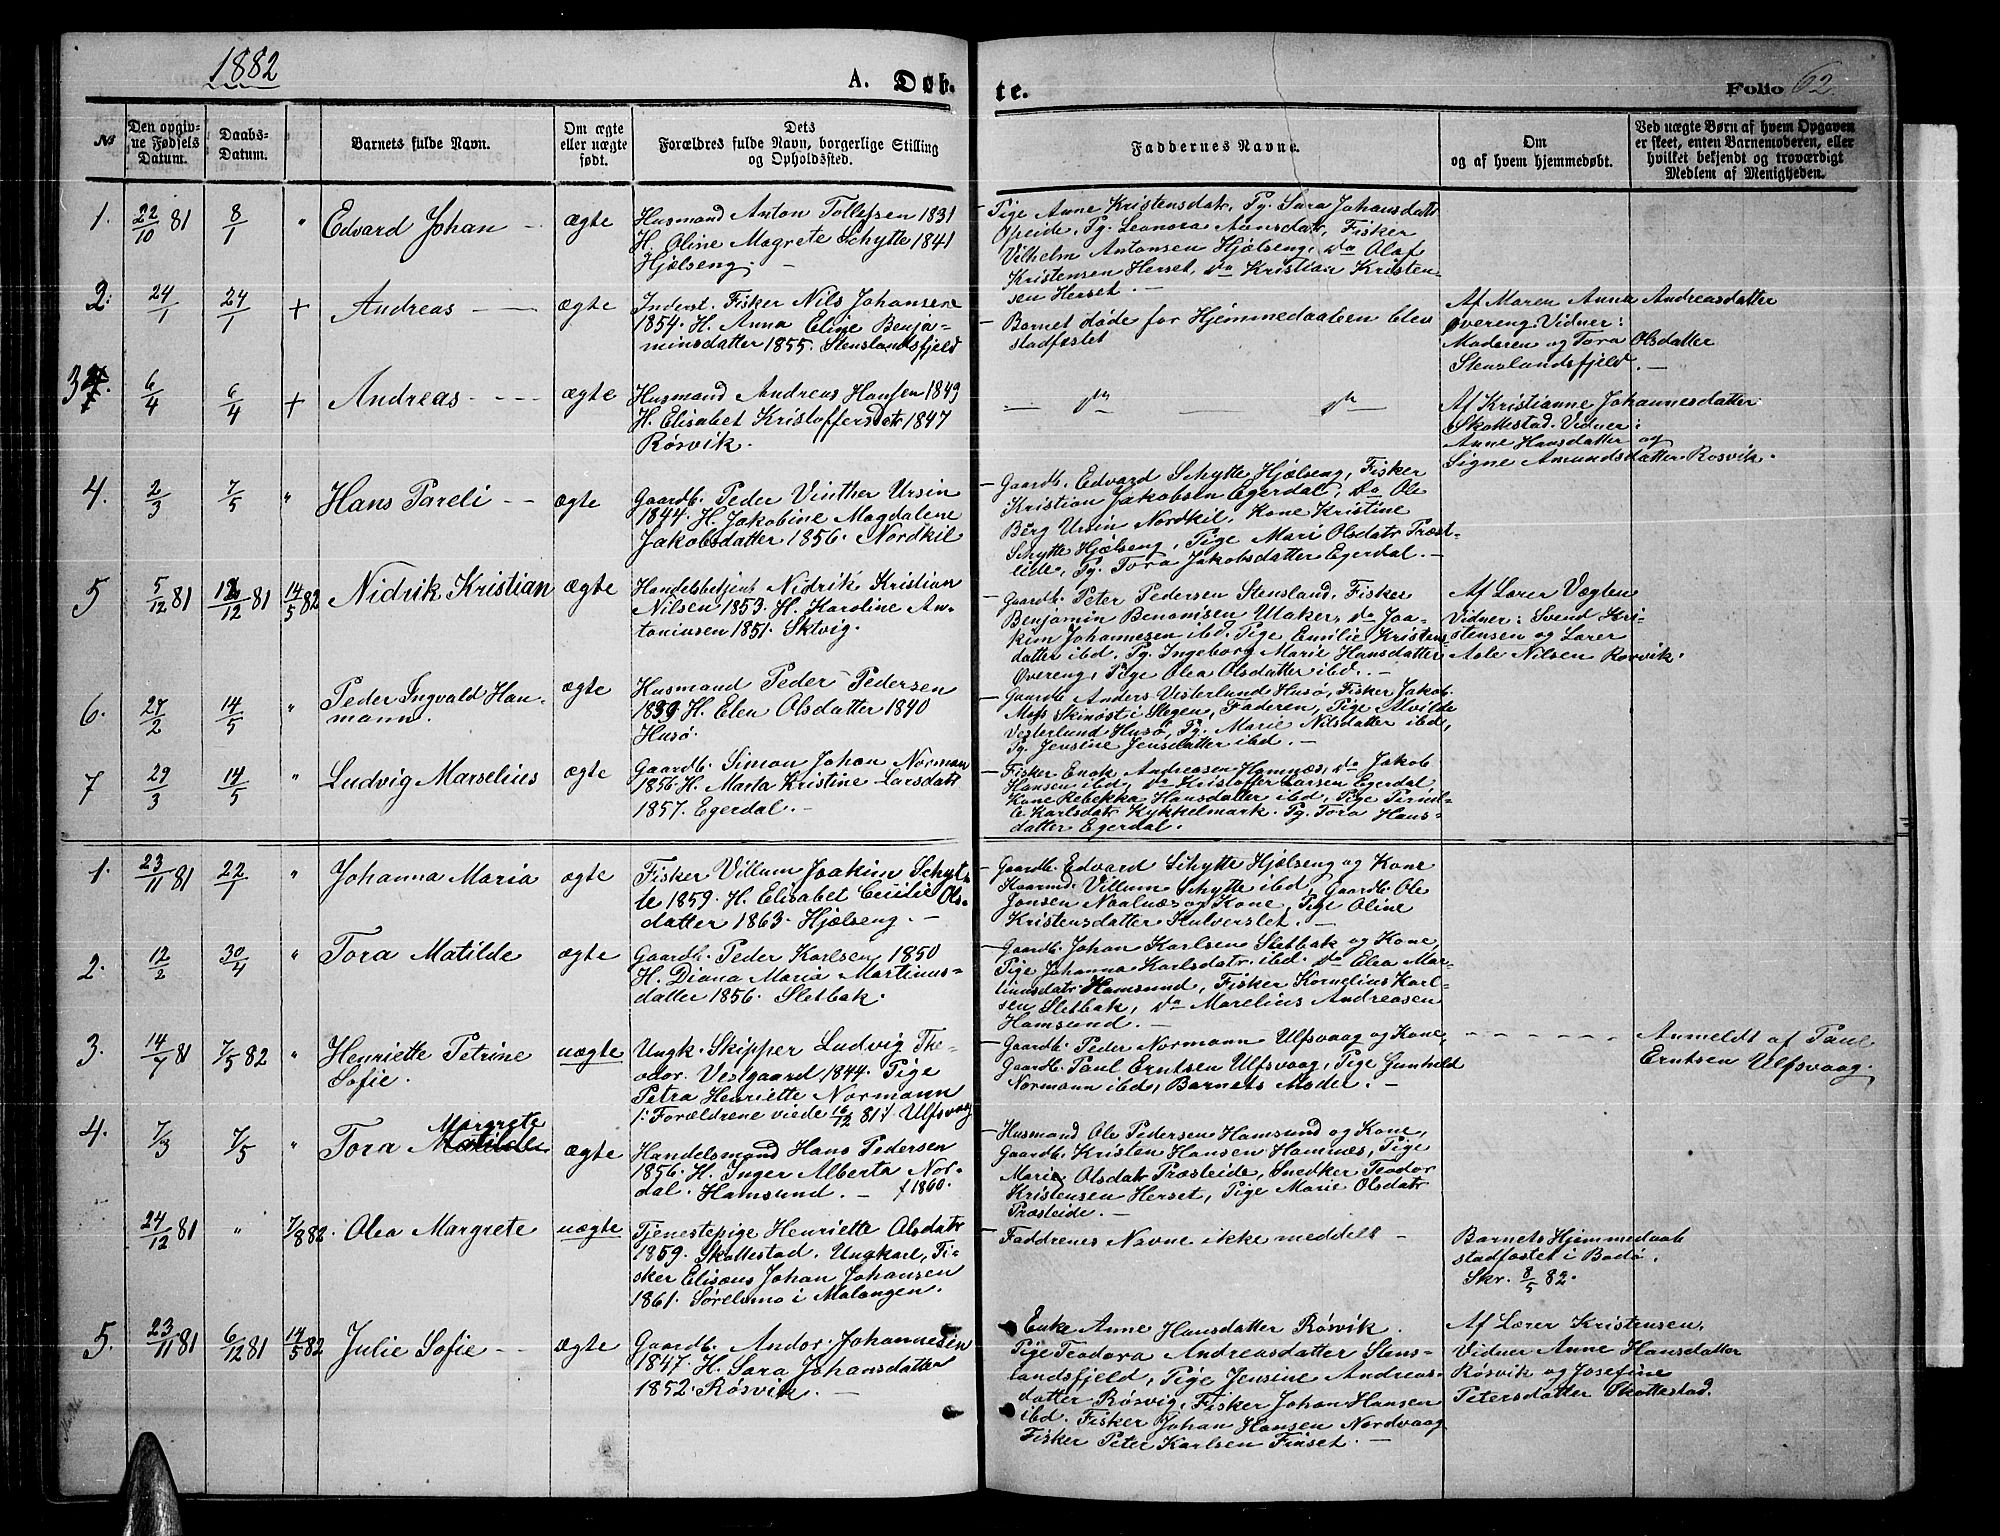 1882
A. Døb-
te.
Folio 62.
№
Den opgiv-
ne Fødsels
Datum.
Daabs-
Datum.
Barnets fulde Navn.
Om ægte
eller uægte
født.
Dets
Forældres fulde Navn, borgerlige Stilling
og Opholdssted.
Faddernes Navne.
Om
og af hvem hjemmedøbt.
Ved uægte Børn af hvem Opgaven
er skeet, enten Barnemoderen, eller
hvilket bekjendt og troværdigt
Medlem af Menigheden.
1. 22/10 81 8/1 " Edvard Johan - ægte
Husmand Anton Tollefsen 1831
H. Oline Magrete Schytte 1841
Hjelseng. -
- Pige Anne Kristensdatr, Pg. Sara Johansdatr
Opeide, Pg. Leonora Aansdatr, Fisker
Vilhelm Antonsen Hjelseng, do Olaf
Kristensen Herset, do Kristian Kristen-
sen Herset. -
2. 24/1 24/1 + Andreas - ægte
Inderst. Fisker Nils Johansen
1854. H. Anna Eline Benja-
minsdatter 1855. Stenslandsfjeld
- Barnet døde før Hjemmedaaben blev
stadfæstet
Af Maren Anna Andreasdatter
Overeng. Vidner:
Moderen og Tora Olsdatter
Stenslandsfjeld. -
3. 6/4 6/4 + Andreas - ægte
Husmand Andreas Hansen 1849
H. Elisabet Kristoffersdatr 1847
Rørvik.
- do - do -
Af Kristianne Johannesdatter
Skottestad. Vidner:
Anne Hansdatter og
Signe Amundsdatter Rørvik.
4. 2/3 7/5 " Hans Pareli - ægte
Gaardb. Peder Vinther Ursin
1844. H. Jakobine Magdalene
Jakobsdatter 1856. Nordkil
- Gaardb. Edvard Schytte Hjelseng, Fisker
Kristian Jakobsen Egerdal, do Ole
Berg Ursin Nordkil, Kone Kristine
Schytte Hjelseng, Pige Mari Olsdatr Præst-
eide, Pg. Tora Jakobsdatter Egerdal. -
5 5/12 81 12/12 81 14/5 82 Nidrik Kristian ægte
Handelsbetjent Nidrik Kristian
Nilsen 1853. H. Karoline An-
toniusen 1851. Sktvig.
- Gaardb. Peter Pedersen Stensland. Fisker
Benjamin Benonisen Utaker, do Joa-
kim Johannesen ibd. Pige Emilie Kristens-
datter ibd. Pg. Ingeborg Marie Hansdatter
Overeng, Pige Olea Olsdatter ibd.
Af Lærer Vægten
Vidner: Svend Kri-
stensen og Lærer
Asle Nilsen Rørvik.
6. 27/2 14/5 " Peder Ingvald Han-
mann. ægte
Husmand Peder Pedersen
1839 H. Elen Olsdatter 1840
Husø.
- Gaardb. Anders Vesterlund Husø, Fisker Jakob
Mo?s Skinøst i Stegen, Faderen, Pige Alvilde
Vesterlund Husø, Pg. Marie Nilsdatter ibd,
Pg. Jensine Jensdatter ibd. -
7 29/3 14/5 " Ludvig Marselius ægte
Gaardb. Simon Johan Norman
1856 H. Marta Kristine Larsdatr
1857. Egerdal. -
- Fisker Enok Andreasen Hamnæs, do Jakob
Hansen ibd, do Kristoffer Larsen Egerdal
Kone Rebekka Hansdatter ibd, Pige Pernil-
le Karlsdatr Kykkelmark. Pg. Tora Hans-
datter Egerdal.
1. 23/11 81 22/1 " Johanna Maria ægte
Fisker Villum Joakim Schyt-
te 1859. H. Elisabet Cecilie Ols-
datter 1863. Hjelseng. -
- Gaardb. Edvard Schytte Hjelseng og Kone
Kaarmd. Villum Schytte ibd, Gaardb. Ole
Jonsen Naalnæs og Kone, Pige Oline
Kristensdatter Kulverslet. -
2. 12/2 30/4 " Tora Matilde ægte
Gaardb. Peder Karlsen 1850
H. Diana Maria Martinus-
datter 1856. Sletbak.
- Gaardb. Johan Karlsen Sletbak og Kone,
Pige Johanna Karlsdatr. ibd. do Elea Mar-
tinusdatr Hamsund, Fisker Kornelius Karl-
sen Sletbak, do Marelius Andreasen
Hamsund. -
3. 14/7 81 7/5 82 " Henriette Petrine
Sofie. uægte
Ungk. Skipper Ludvig The-
odor Vestgaard 1844. Pige
Petra Henriette Normann
/: Forældrene viede 16/12 81 :/ Ulfsvaag
- Gaardb. Peder Normann Ulfsvaag og Kone,
Gaardb. Paul Erntsen Ulfsvaag, Pige Gunhild
Normann ibd, Barnets Moder. -
Anmeldt af Paul
Erntsen Ulfsvaag.
4. 7/3 7/5 " Tora Matilde Margrete ægte
Handelsmand Hans Pedersen
1856. H. Inger Alberta Nor-
dal. Hamsund. - f 1860.
Husmand Ole Pedersen Hamsund og Kone,
Gaardb. Kristen Hansen Hamnæs, Pige
Marie Olsdatr Præsteide, Snedker Teodor
Kristensen Herset, Pige Marie Olsdatr
Præsteide. -
24/12 81 " 7/8 82. Olea Margrete uægte
Tjenestepige Henriette Olsdatr
1859. Skottestad. Ungkarl, Fi-
sker Elisæus Johan Johansen
1861. Sørelsmo i Malangen.
- Faddrenes Navne ikke meddelt -
Barnets Hjemmedaab
stadfæstet i Bodø.
Skr. 8/5 82.
5. 23/11 81 6/12 81 14/5 82 Julie Sofie - ægte
Gaardb. Andor Johannesen
1847. H. Sara Johansdatter
1852. Rørvik. -
Enke Anne Hansdatter Rørvik.
Pige Teodora Andreasdatter Stens-
landsfjeld, Pige Jensine Andreas-
datter Rørvig, Fisker Johan Hansen
ibd. Fisker Johan Hansen Nordvaag
Fisker Peter Karlsen Finset. -
Af Lærer Kristensen,
Vidner Anne Hansdatter
Rørvik og Josefine
Petersdatter Skottestad.